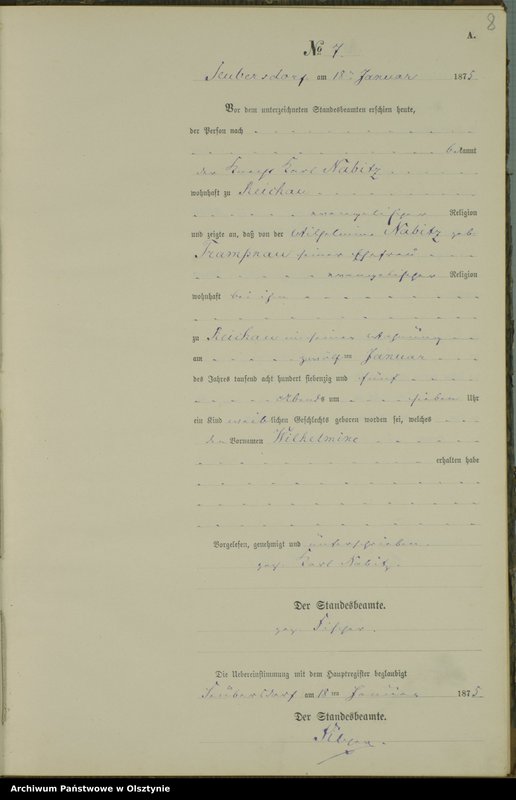 8
A.
No 7
Teubersdorf am 18ten Januar 1875
Vor dem unterzeichneten Standesbeamten erschien heute,
der Person nach
bekannt
der Karl Nabitz
wohnhaft zu Reichau
evangelischer Religion
und zeigte an, daß von der Wilhelmine Nabitz geb.
Trampnau seiner Ehefrau
evangelischer Religion
wohnhaft bei ihm
zu Reichau in seiner Wohnung
am zwölften Januar
des Jahres tausend acht hundert siebenzig und fünf
Abends um sieben Uhr
ein Kind weiblichen Geschlechts geboren worden sei, welches
den Vornamen Wilhelmine
erhalten habe
Vorgelesen, genehmigt und unterschrieben.
gez. Karl Nabitz.
Der Standesbeamte.
gez.
Die Uebereinstimmung mit dem Hauptregister beglaubigt
Teubersdorf am 18ten Januar 1875.
Der Standesbeamte.
Archiwum Państwowe w Olsztynie